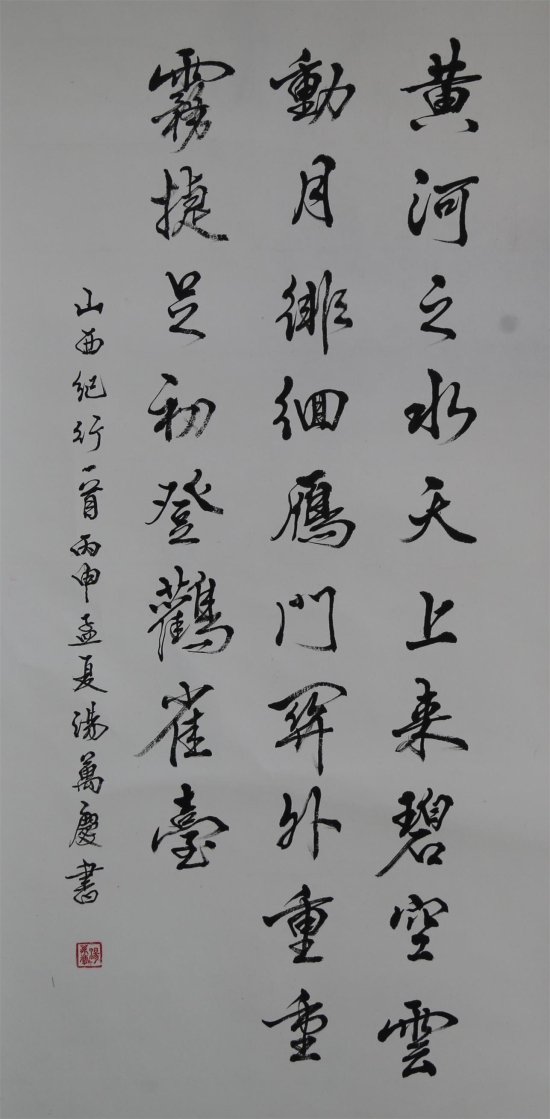 黄河之水天上来碧空雲
動月徘徊鴈門關外重重
霧捷足初登鸛雀臺
山西紀行一首丙申孟夏湯萬慶書